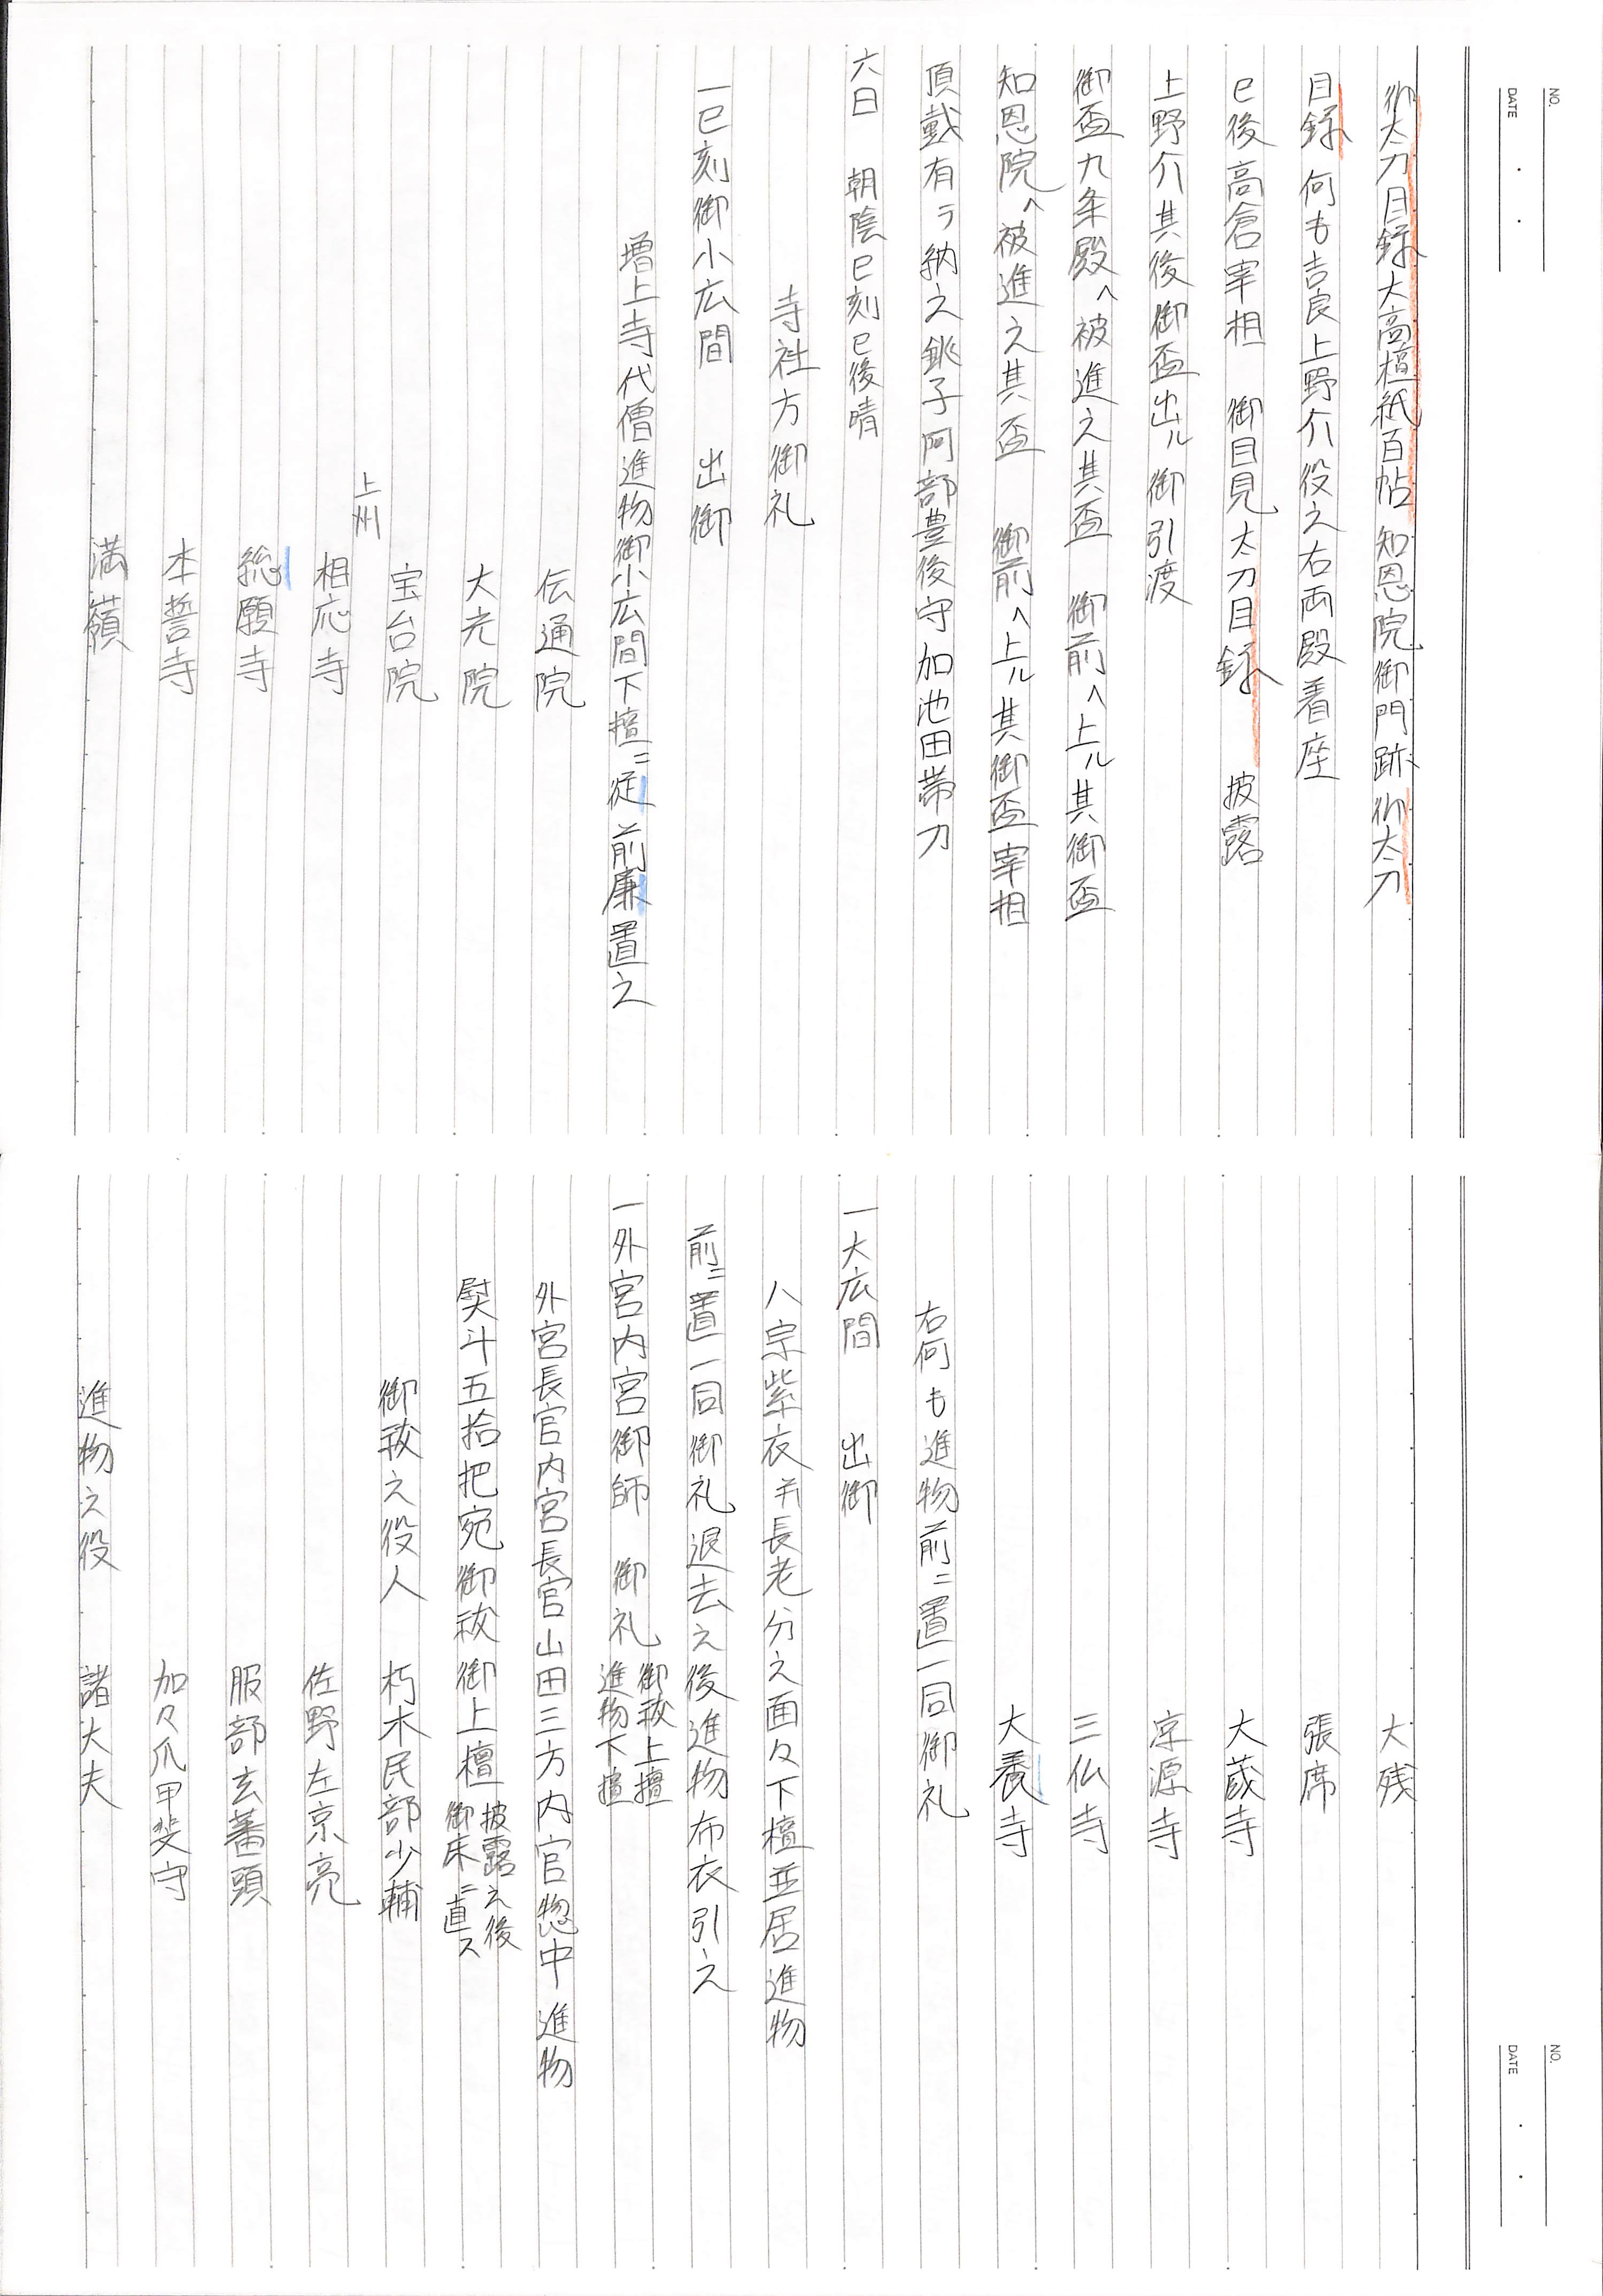 NO.
DATE
御太刀目録大高檀紙百帖 知恩院御門跡御太刀
目録 何も吉良上野介役之右両殿着座
已後高倉宰相 御目見太刀目録 披露
上野介其後御盃出ル御引渡
御盃九条殿ヘ被進之其盃 御前ヘ上ル其御盃
知恩院ヘ被進之其盃 御前ヘ上ル其御盃宰相
頂戴有テ納之銚子阿部豊後守加池田帯刀
六日 朝陰巳刻已後晴
寺社方御礼
一巳刻御小広間 出御
増上寺代僧進物御小広間下檀ニ従前廉置之
伝通院
大光院
宝台院
上州
相応寺
総願寺
本誓寺
満嶺
NO.
DATE
大残
張席
大蔵寺
浄源寺
三仏寺
大養寺
右何も進物前ニ置一同御礼
一大広間 出御
八宗紫衣并長老分之面々下檀並居進物
前ニ置一同御礼退去之後進物布衣引之
一外宮内宮御師 御礼 御祓上檀 進物下檀
外宮長官内宮長官山田三方内官惣中進物
熨斗五拾把宛御祓御上檀 披露之後 御床ニ直ス
御祓之役人 朽木民部少輔
佐野左京亮
服部玄蕃頭
加々爪甲斐守
進物之役 諸大夫